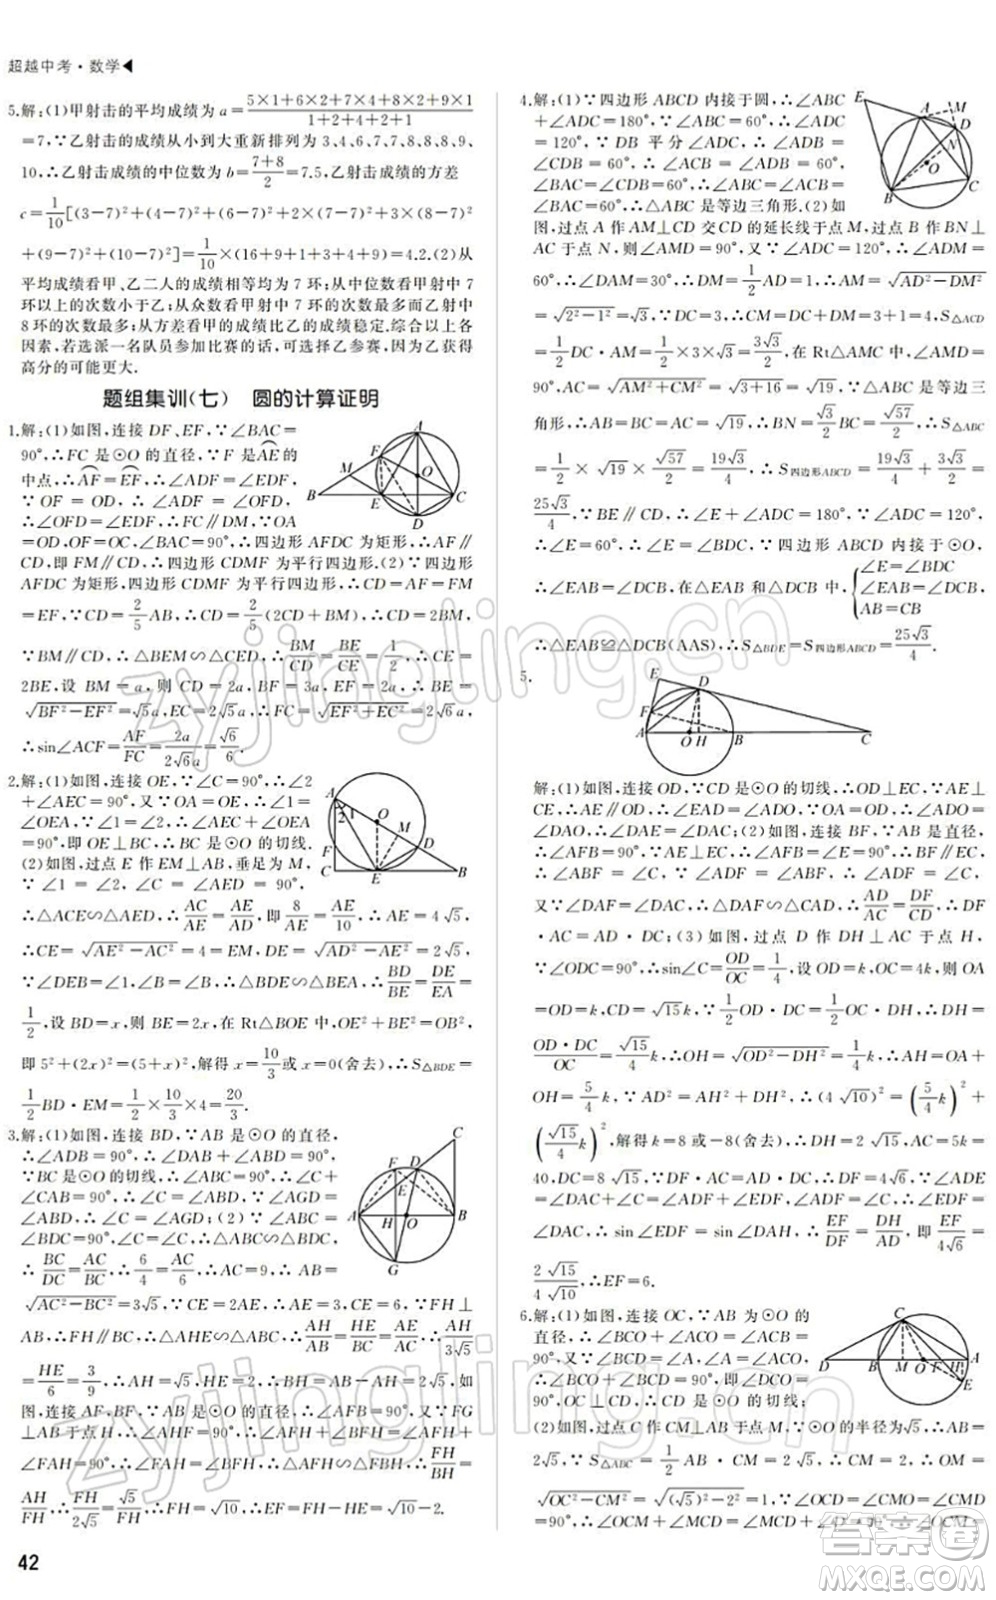 超越中考·数学◀
5.解:(1)甲射击的平均成绩为a=(5×1+6×2+7×4+8×2+9×1)/(1+2+4+2+1)
=7,∵乙射击的成绩从小到大重新排列为3、4、6、7、7、8、8、8、9、
10,∴乙射击成绩的中位数b=(7+8)/2=7.5,乙射击成绩的方差
c=1/10[(3-7)²+(4-7)²+(6-7)²+2×(7-7)²+3×(8-7)²
+(9-7)²+(10-7)²]=1/10×(16+9+1+3+4+9)=4.2.(2)从
平均成绩看甲、乙二人的成绩相等均为7环;从中位数看甲射中7
环以上的次数小于乙;从众数看甲射中7环的次数最多而乙射中
8环的次数最多;从方差看甲的成绩比乙的成绩稳定.综合以上各
因素,若选派一名队员参加比赛的话,可选择乙参赛,因为乙获得
高分的可能更大.
题组集训(七) 圆的计算证明
1.解:(1)如图,连接DF、EF,∵∠BAC=
90°,∴FC是⊙O的直径,∵F是AE的
中点,∴AF=EF,∴∠ADF=∠EDF,
∵OF=OD,∴∠ADF=∠OFD,
∴∠OFD=∠EDF,∴FC∥DM,∵OA
=OD,OF=OC,∠BAC=90°,∴四边形AFDC为矩形,∴AF∥
CD,即FM∥CD,∴四边形CDMF为平行四边形.(2)∵四边形
AFDC为矩形,四边形CDMF为平行四边形,∴CD=AF=FM
=EF,∵CD=2/5AB,∴CD=2/5(2CD+BM),∴CD=2BM,
∵BM∥CD,∴△BEM∽△CED,∴BM/CD=BE/CE=1/2,∴CE=
2BE,设BM=a,则CD=2a,BF=3a,EF=2a,∴BE=
√(BF²-EF²)=√5a,EC=2√5a,∴FC=√(EF²+EC²)=2√6a,
∴sin∠ACF=AF/FC=2a/(2√6a)=√6/6.
2.解:(1)如图,连接OE,∵∠C=90°,∴∠2
+∠AEC=90°,又∵OA=OE,∴∠1=
∠OEA,∵∠1=∠2,∴∠AEC+∠OEA
=90°,即OE⊥BC,∴BC是⊙O的切线.
(2)如图,过点E作EM⊥AB,垂足为M,
∵∠1=∠2,∠C=∠AED=90°,
∴△ACE∽△AED,∴AC/AE=AE/AD,即8/AE=AE/10,∴AE=4√5,
∴CE=√(AE²-AC²)=4=EM,DE=√(AD²-AE²)=2√5,
∵∠DEB=∠1,∠B=∠B,∴△BDE∽△BEA,∴BD/BE=DE/EA=
1/2,设BD=x,则BE=2x,在Rt△BOE中,OE²+BE²=OB²,
即5²+(2x)²=(5+x)²,∴x=10/3或x=0(舍去),∴S△BDE=
1/2BD·EM=1/2×10/3×4=20/3.
3.解:(1)如图,连接BD,∵AB是⊙O的直径,
∴∠ADB=90°,∴∠DAB+∠DBA=90°,
∵BC是⊙O的切线,∴∠ABC=90°,∴∠C+
∠CAB=90°,∴∠C=∠ABD,∵∠AGD=
∠ABD,∴∠C=∠AGD;(2)∵∠ABC=
∠BDC=90°,∠C=∠C,∴△ABC∽△BDC,
∴BC/DC=AC/BC,∴6/4=AC/6,∴AC=9,∴AB=
√(AC²-BC²)=3√5,∵CE=2AE,∴AE=3,CE=6,∵FH⊥
AB,∴FH∥BC,∴△AHE∽△ABC,∴AH/AB=HE/BC=AE/AC,∴AH/3√5
=HE/6=3/9,∴AH=√5,HE=2,
如图,连接AF,BF,∵AB是⊙O的直径,∴∠AFB=90°,又∵FG
⊥AB,∴∠AHF=∠FHB=90°,∴∠AFH+∠BFH=∠AFH
+∠FAH=90°,∴∠FAH=∠BFH,∴△AFH∽△FBH,∴FH/BH=
AH/FH,∴FH/2√5=√5/FH,∴FH=√10,∴EF=√10-2.
4.解:(1)∵四边形ABCD内接于圆,∴∠ABC
+∠ADC=180°,∵∠ABC=60°,∴∠ADC=
120°,∵DB平分∠ADC,∴∠ADB=
∠CDB=60°,∴∠ACB=∠ADB=60°,
∠BAC=∠CDB=60°,∴∠ABC=∠ACB=
∠BAC=60°,∴△ABC是等边三角形.(2)如
图,过点A作AM⊥CD交CD的延长线于点M,过点B作BN⊥
AC于点N,则∠AMD=90°,又∵∠ADC=120°,∴∠ADM=
60°,∴∠DAM=30°,∴DM=1/2AD=1,∴AM=√(AD²-DM²)
=√(2²-1²)=√3,∵DC=3,∴CM=DC+DM=3+1=4,S△ACD
=1/2DC·AM=1/2×3×√3=3√3/2,在Rt△AMC中,∠AMC=
90°,AC=√(AM²+CM²)=√(3+16)=√19,∵△ABC是等边三
角形,∴AC=BC=AB=√19,∴BN=√3/2BC=√57/2,∴S△ABC
=1/2×√19×√57/2=19√3/4,∴S四边形ABCD=19√3/4+3√3/2=
25√3/4,∵BE∥CD,∴∠E+∠ADC=180°,∵∠ADC=120°,
∴∠E=60°,∴∠E=∠BDC,∵四边形ABCD内接于⊙O,
∴∠EAB=∠DCB,在△EAB和△DCB中,{∠E=∠BDC ∠EAB=∠DCB AB=CB
∴△EAB≌△DCB(AAS),∴S△BDE=S四边形ABCD=25√3/4.
5.
解:(1)如图,连接OD,∵EC是⊙O的切线,∴OD⊥EC,∵AE⊥
CE,∴AE∥OD,∴∠EAD=∠ADO,∵OA=OD,∴∠ADO=
∠DAO,∴∠DAE=∠DAC;(2)如图,连接BF,∵AB是直径,
∴∠AFB=90°,∵AE⊥EC,∴∠AFB=∠E=90°,∴BF∥EC,
∴∠ABF=∠C,∵∠ADF=∠ABF,∴∠ADF=∠C,
又∵∠DAF=∠DAC,∴△DAF∽△CAD,∴AD/AC=DF/CD,∴DF
·AC=AD·DC;(3)如图,过点D作DH⊥AC于点H,
∵∠ODC=90°,∴sin∠C=OD/OC=1/4,设OD=k,OC=4k,则OA
=OD=k,∴DC=√15k,∵1/2OD·DC=1/2OC·DH,∴DH=
OD·DC/OC=√15/4k,∴OH=√(OD²-DH²)=1/4k,∴AH=OA+
OH=5/4k,∵AD²=AH²+DH²,∴(4√10)²=(5/4k)²+
(√15/4k)²,解得k=8或-8(舍去),∴DH=2√15,∴AC=5k=
40,DC=8√15,∵DF·AC=AD·DC,∴DF=4√6,∵∠ADE
=∠DAC+∠C=∠ADF+∠EDF,∠ADF=∠C,∴∠EDF=
∠DAC,∴sin∠EDF=sin∠DAH,∴EF/DF=DH/AD,即EF/4√6=
2√15/4√10,∴EF=6.
6.解:(1)如图,连接OC,∵AB为⊙O的
直径,∴∠BCO+∠OCA=∠ACB=
90°,又∵∠A=∠OCA,∠BCD=∠A,
∴∠BCO+∠BCD=90°,即∠DCO=
90°,∵OC是半径,∴CD是⊙O的切线;
(2)如图,过点C作CM⊥AB于点M,∵⊙O的半径为√5,∴AB=
2√5,∵S△ABC=1/2AB·CM=1/2×2√5×CM=2√5,∴CM=2,∴OM=
√(OC²-CM²)=√((√5)²-2²)=1,∵∠DCO=∠CMO=∠CMD
=90°,∴∠OCM+∠COM=
42
zyjingling.cn
zyjingling.cn
答案圈
MXQE.COM